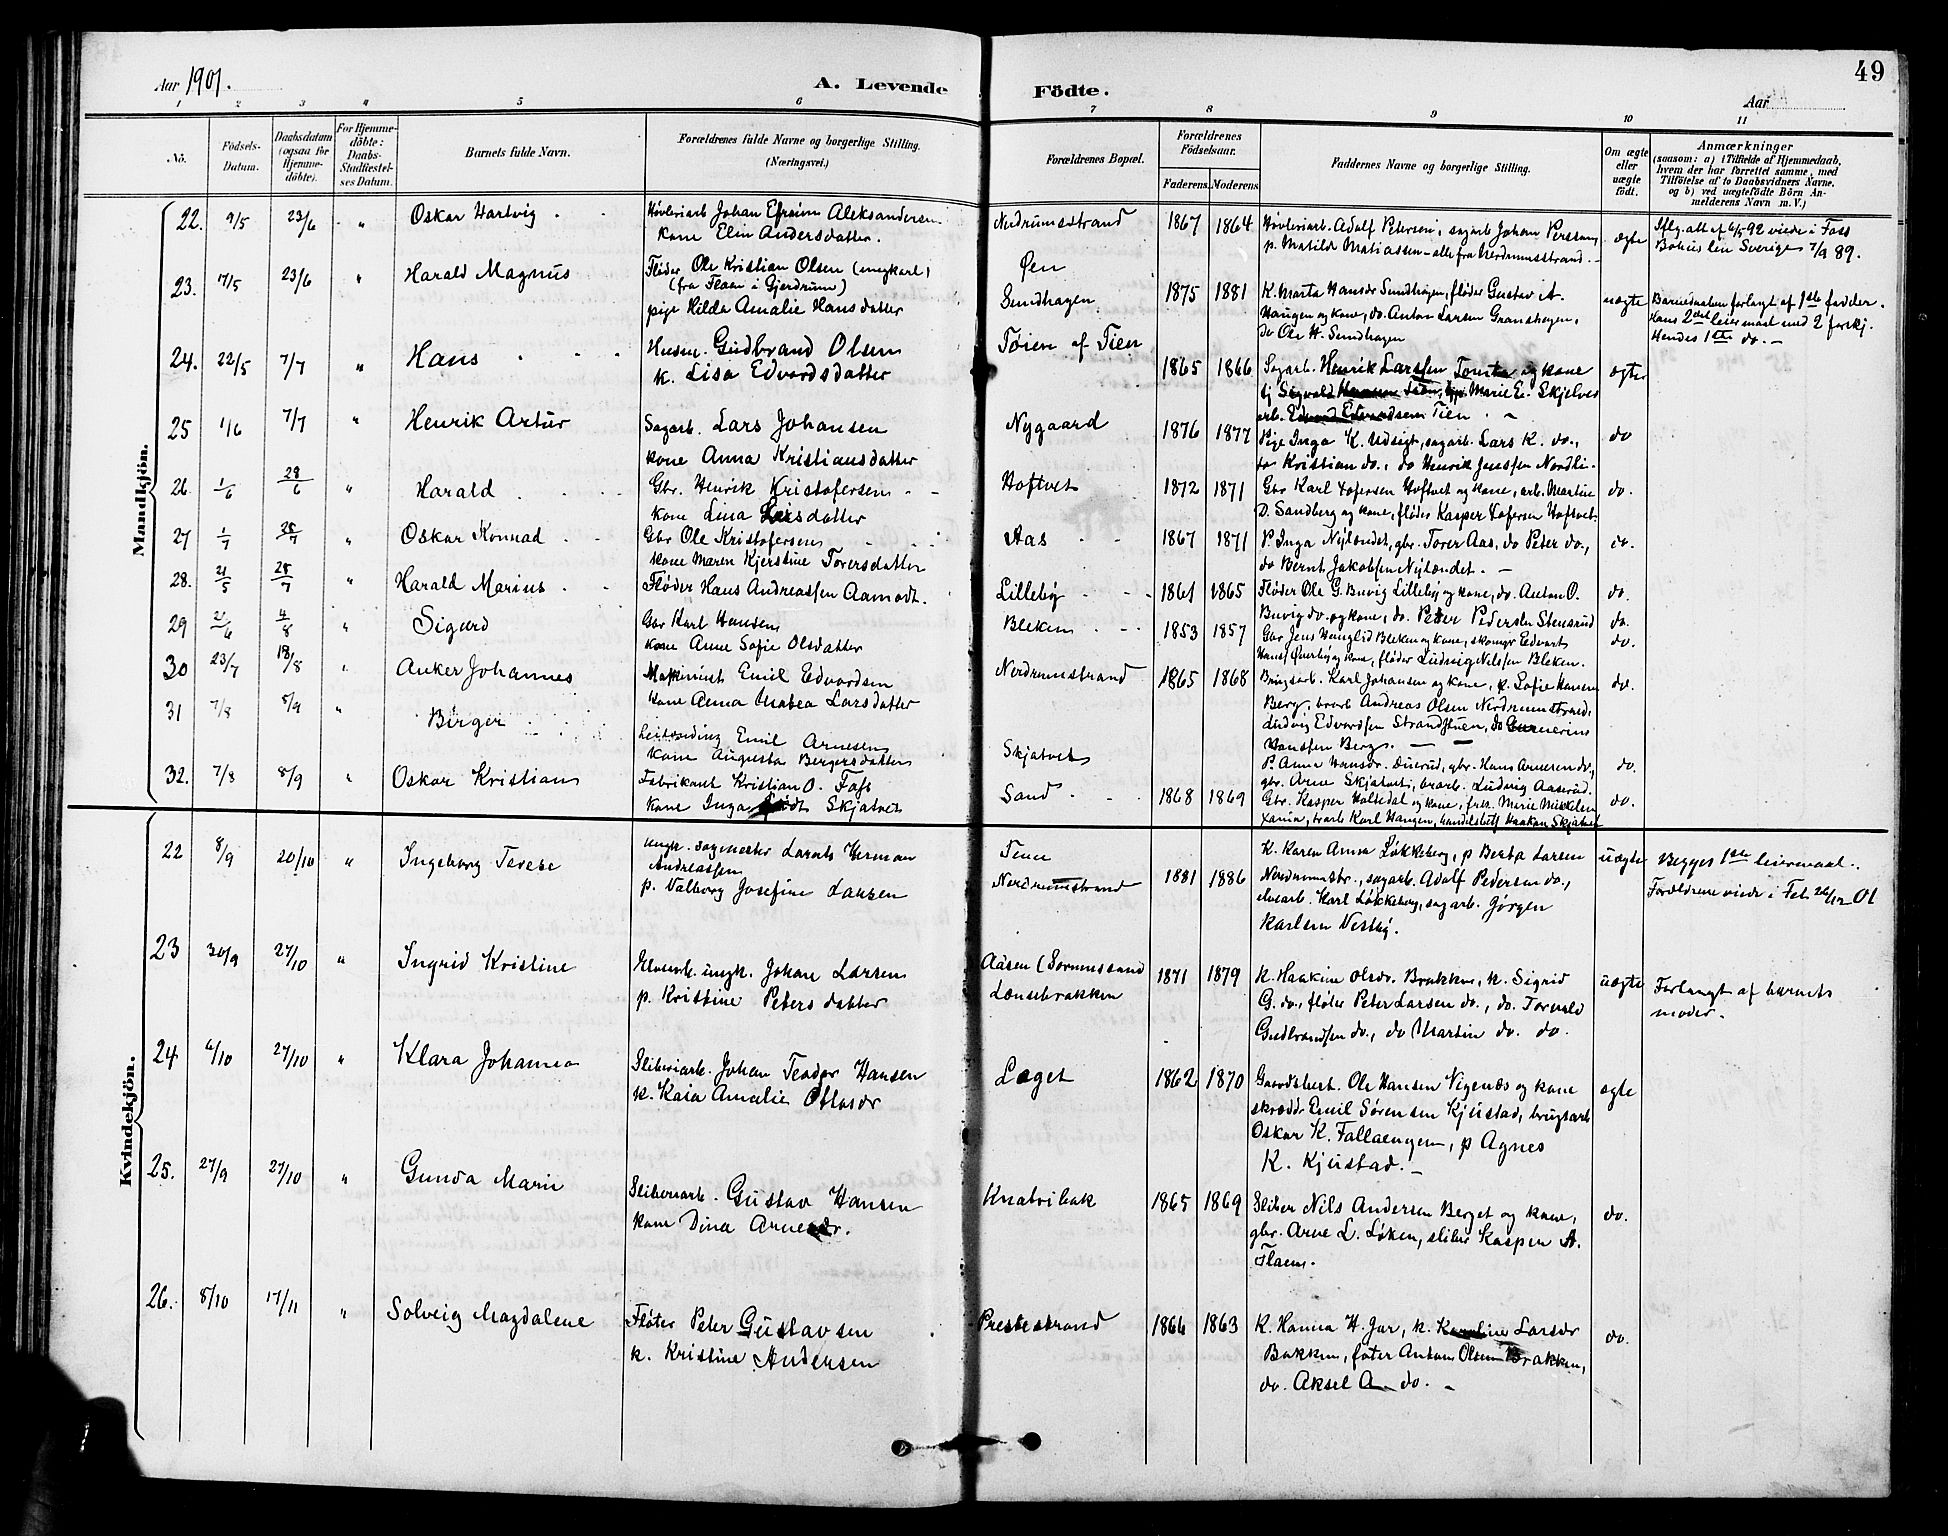 49
Aar 1901.
A. Levende Födte.
Aar
1 2 3 4 5 6 7 8 9 10 11
No. Födsels-Datum. Daabsdatum (ogsaa for Hjemme-döbte). For Hjemme-döbte: Daabs-Stadfæstel-ses Datum. Barnets fulde Navn. Forældrenes fulde Navne og borgerlige Stilling. (Næringsvei.) Forældrenes Bopæl. Forældrenes Födselsaar. Faderens. Moderens. Faddernes Navne og borgerlige Stilling. Om ægte eller uægte födt. Anmærkninger (saasom: a) i Tilfælde af Hjemmedaab, hvem der har forrettet samme, med Tilföielse af to Daabsvidners Navne, og b) ved uægtefödte Börn An-melderens Navn m. V.)
Mandkjön.
22. 9/5 23/6 " Oskar Hartvig Høvleriarb Johan Efraim Aleksandersen Nerdrumsstrand 1867 1864 Høvleriarb. Adolf Petersen, sagarb Johan
kone Elin Andersdatter. p. Matilde Matiassen - alle fra Nerdrumsstrand. - ægte
Iflg. att af 6/5-92 viede i Foss
Bohus len Sverige 7/9 89.
23. 17/5 23/6 " Harald Magnus Fløder Ole Kristian Olsen (ungkarl) Øen
(fra Flaen i Gjerdrum)
pige Hilda Amalie Hansdatter Sundhagen 1875 1881 K. Marta Hansdr Sundhagen, fløder Gustav A. uægte
Haugen og kone, do. Anton Larsen Granshagen,
do Ole H. Sundhagen
Barnedaaben forlangt af 1ste fadder.
Hans 2det leiermaal med 2 forskj.
Hendes 1ste do. -
24. 22/5 7/7 " Hans Husm. Gudbrand Olsen Tøien af Tien
k. Lisa Edvardsdatter 1865 1866 Sagarb. Henrik Larssen og kone ægte
Marie E. Skjelves
arb. Edvardsen Tien. -
25 1/6 7/7 " Henrik Artur Sagarb. Lars Johansen Nygaard 1876 1877 Pige Inga K. Udsigt, sagarb. Lars K. do., do
kone Anna Kristiansdatter Kristian do., do Henrik Jenssen Nordli.
26. 1/6 28/6 " Harald Gbr. Henrik Kristofersen Hoftvet 1872 1871 Gbr Karl Xofersen Hoftvet og kone, arb. Martin do.
kone Lina Larsdatter D. Sandberg og kone, fløder Kasper Xofersen Hoftvet.
27 1/7 28/7 " Oskar Konrad Gbr Ole Kristofersen Aas 1867 1871 P. Inga Nylændet, gbr. Torer Aas, do Peter do., do.
kone Maren Kjerstine Torersdatter do Bernt Jakobsen Nylændet. -
28. 21/5 28/7 " Harald Marius Fløder Hans Andreassen Aamodt. Lilleby 1861 1865 Fløder Ole G. Buvig Lilleby og kone, do. Anton O. do.
Buvig do. og kone, do. Peter Pedersen Stensrud do.
29 21/6 4/8 " Sigurd Gbr Karl Hansen Bleken 1853 1857 Gbr Jens Hanglid Bleken og kone, Edvart do.
kone Anne Sofie Olsdatter Hans og kone, fløder Ludvig Nilssen Bleken.
30 23/7 18/8 " Anker Johannes Maskinist Emil Edvardsen Nerdrumstrand 1865 1868 Brugsarb. Karl Johansen og kone, p. Sofie Hansen do.
kone Anna Matea Larsdatter Berg, Andreas Olsen Nerdrumstrand,
Ludvig Edvardsen
Hanssen Berg. -
31 7/8 8/9 " Birger Emil Arnesen Skjatvet
kone Augusta Bergersdatter P. Anne Hansdr. gbr. Hans Arnesen do., do.
gbr. Arne Skjatvet, Ludvig Aaserud.
32. 7/8 8/9 " Oskar Kristian Fabrikant Kristian O. Foss Sand 1868 1869 Gbr. Kasper Holtedal og kone, frk. Marie Mikkelsen do.
kone Inga født Skjatvet Xania, Karl Haugen, Haakon Skjatvet
Kvindekjön.
22 8/9 20/10 " Ingeborg Terese ungk. sagmester Lavrits Herman Tien
Andreassen
p. Valborg Josefine Larsen Nerdrumstrand 1881 1886 K. Karen Anna Løkkeberg, p Berta Larsen uægte
Nerdrumstr., sagarb. Adolf Pedersen do.,
Karl Løkkeberg, sagarb. Jørgen
Karlsen Nestby.
Begges 1ste leiermaal.
Forældrene viede i Fet 26/12 01
23 30/9 27/10 " Ingrid Kristine ungk. Johan Larsen Aasen (Sørumssand
p. Kristine Petersdatter Lænsebrakken 1871 1879 K. Haakine Olsdr. Brakken, k. Sigrid uægte
G. do., fløder Peter Larsen do., do. Torvald
Gudbrandsen do., do Martin do. do.
Forlangt af barnets
moder.
24 6/10 27/10 " Klara Johanna Sliberiarb. Johan Teodor Hansen Laget 1862 1870 Gaardsbest. Ole Hansen Vigenæs og kone ægte
k. Kaia Amalie Ottosdr skrædder Emil Sørensen Kjustad, brugsarb
Oskar K. Fallaengen, p Agnes
K. Kjustad. -
25. 27/9 27/10 " Gunda Marie Sliberiarb. Gustav Hansen Knatvibak 1865 1869 Sliber Nils Andersen Berget og kone, do.
kone Dina Arnesdr. gbr. Arne L. Løken, sliber Kasper A.
Flaen.
26. 8/10 17/11 " Solveig Magdalene Fløter Peter Gustavsen Prestestrand 1866 1863 K. Hanna H. Jar, k. Karoline Larsdr do.
k. Kristine Andersen Bakken, Anton Olsen Brakken,
do. Aksel A do. -